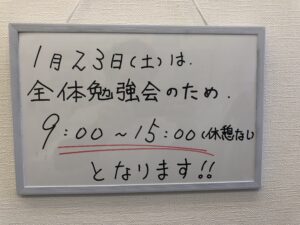 1月23日(土)は.
全体勉強会のため.
9:00～15:00(休憩ない
となります!!